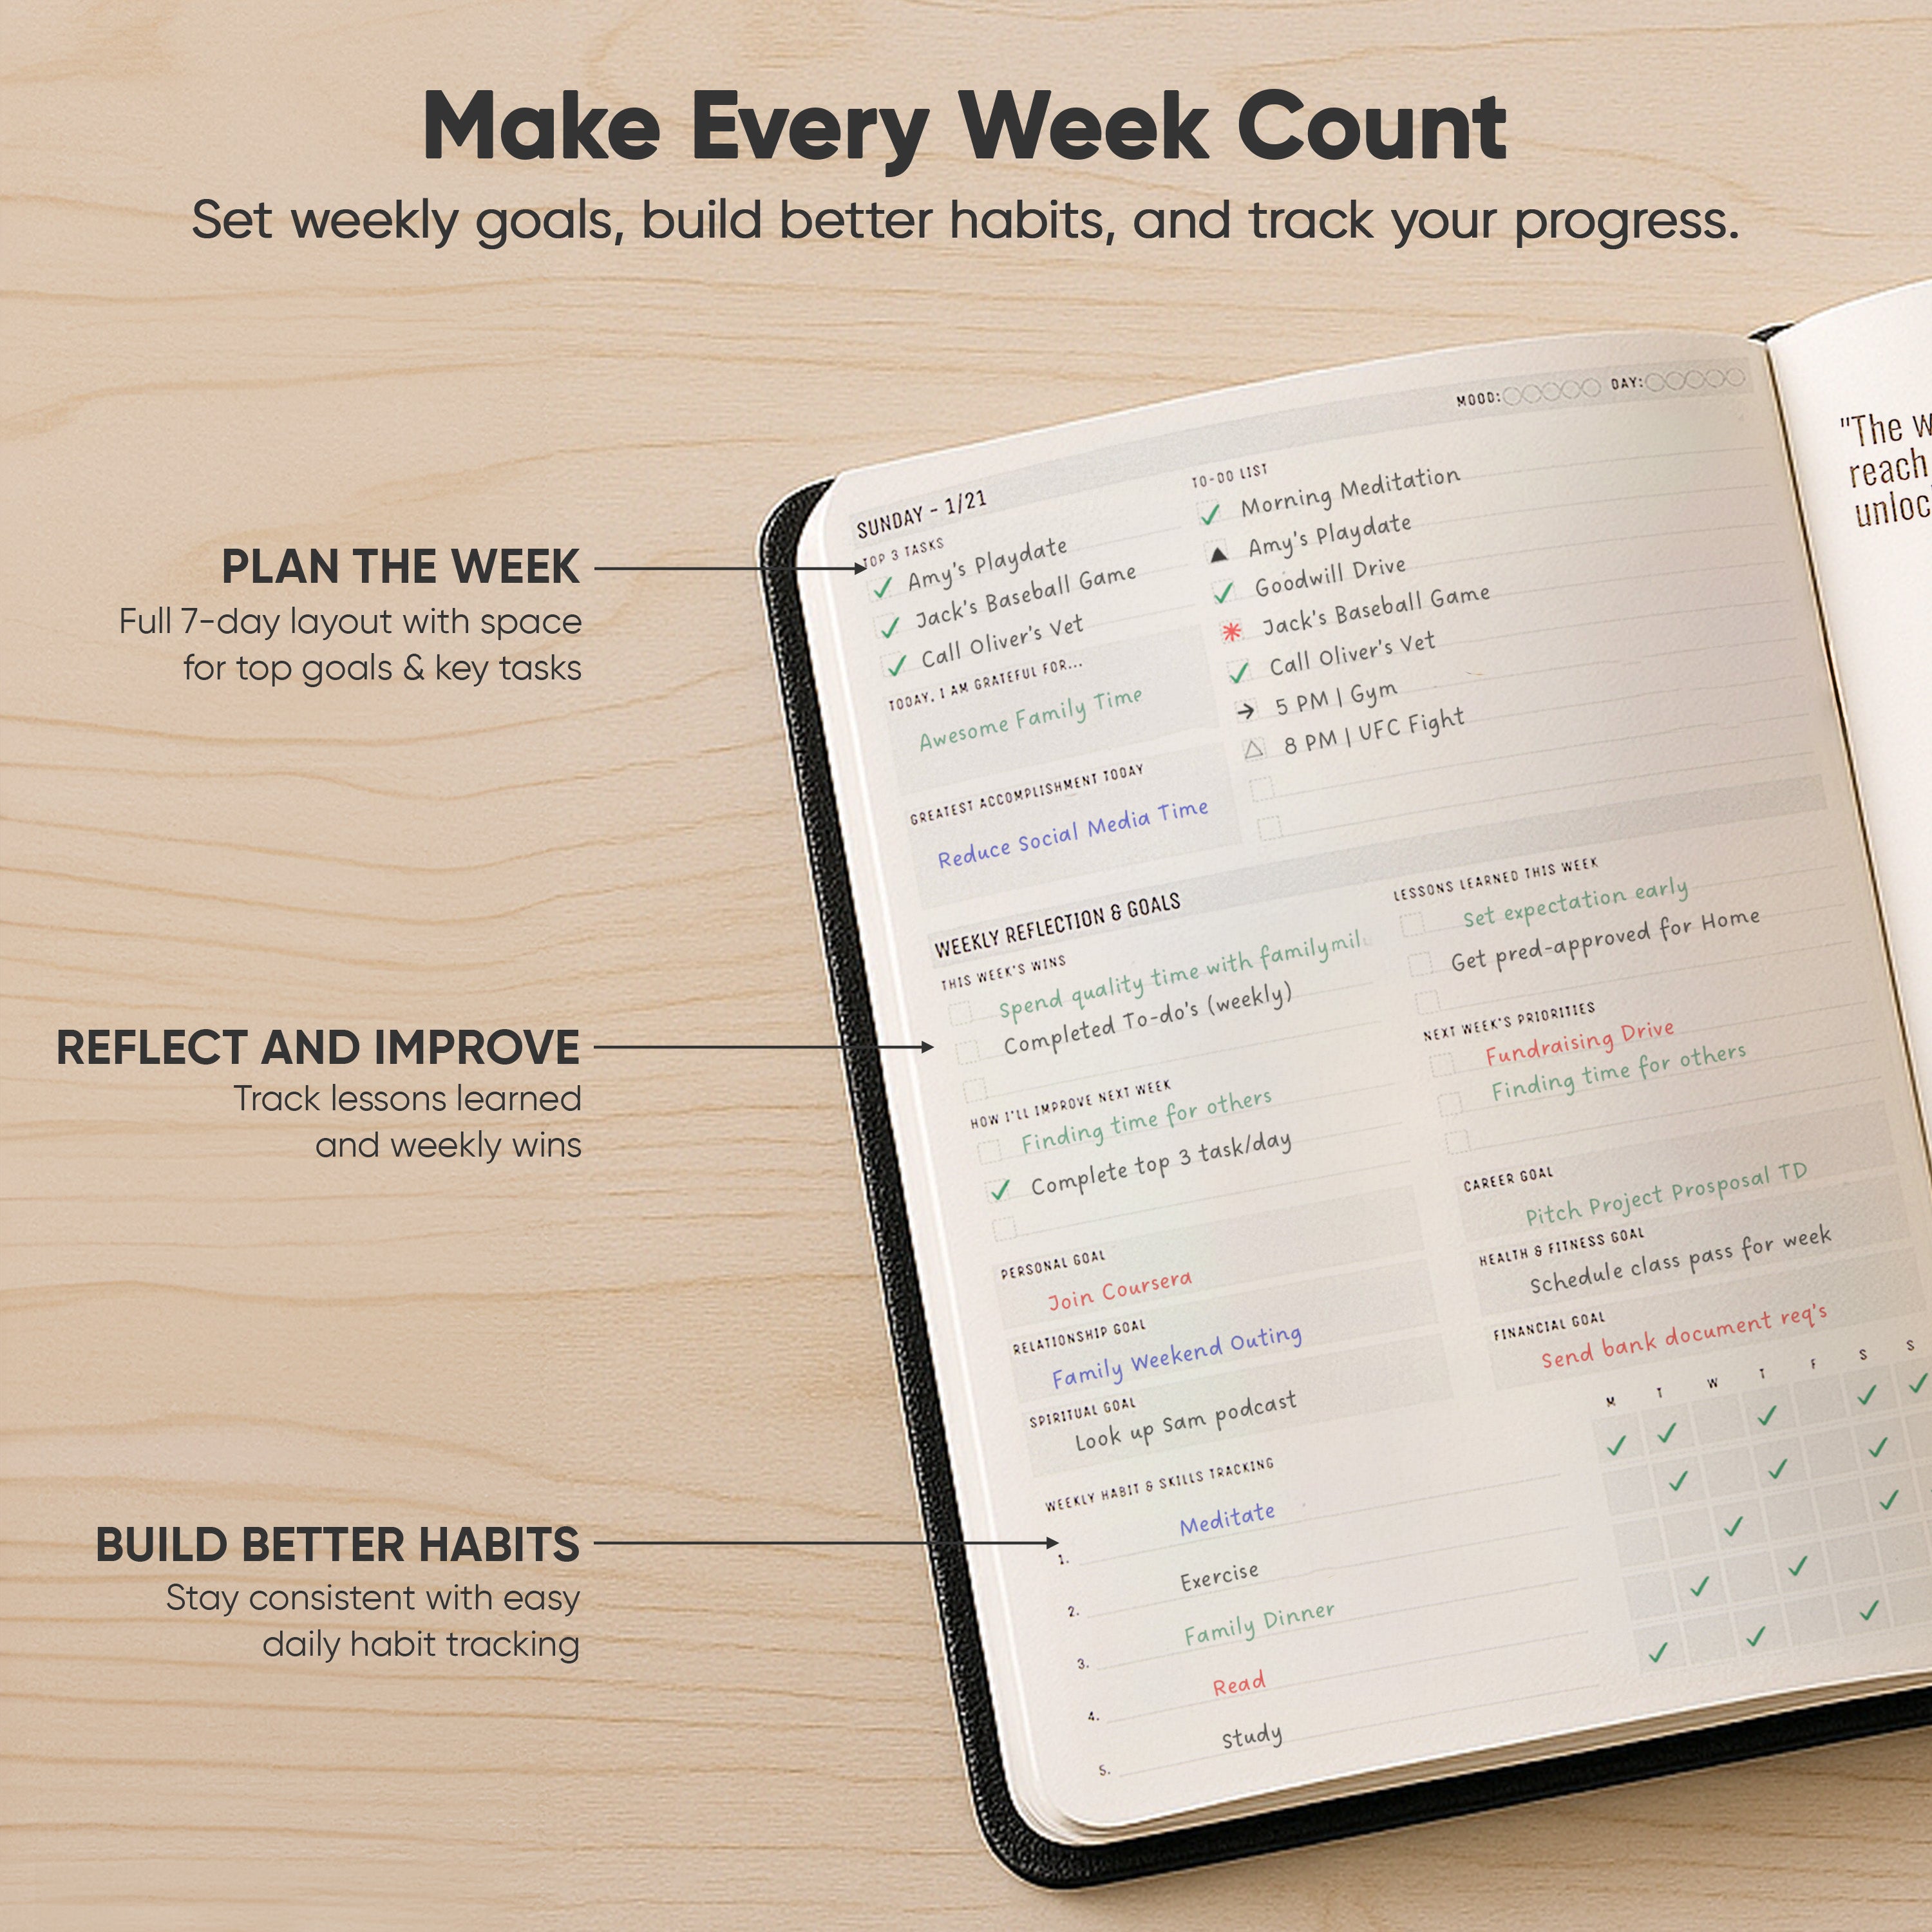 Make Every Week Count
Set weekly goals, build better habits, and track your progress.
PLAN THE WEEK
Full 7-day layout with space
for top goals & key tasks
REFLECT AND IMPROVE
Track lessons learned
and weekly wins
BUILD BETTER HABITS
Stay consistent with easy
daily habit tracking
SUNDAY - 1/21
MOOD: DAY:
TOP 3 TASKS
Amy's Playdate
Jack's Baseball Game
Call Oliver's Vet
TODAY, I AM GRATEFUL FOR...
Awesome Family Time
GREATEST ACCOMPLISHMENT TODAY
Reduce Social Media Time
TO-DO LIST
Morning Meditation
Amy's Playdate
Goodwill Drive
Jack's Baseball Game
Call Oliver's Vet
5 PM | Gym
8 PM | UFC Fight
WEEKLY REFLECTION & GOALS
THIS WEEK'S WINS
Spend quality time with familymil
Completed To-do's (weekly)
LESSONS LEARNED THIS WEEK
Set expectation early
Get pred-approved for Home
HOW I'LL IMPROVE NEXT WEEK
Finding time for others
Complete top 3 task/day
NEXT WEEK'S PRIORITIES
Fundraising Drive
Finding time for others
PERSONAL GOAL
Join Coursera
RELATIONSHIP GOAL
Family Weekend Outing
SPIRITUAL GOAL
Look up Sam podcast
CAREER GOAL
Pitch Project Prosposal TD
HEALTH & FITNESS GOAL
Schedule class pass for week
FINANCIAL GOAL
Send bank document req's
WEEKLY HABIT & SKILLS TRACKING
M T W T F S S
1. Meditate
2. Exercise
3. Family Dinner
4. Read
5. Study
"The w
reach
unloc